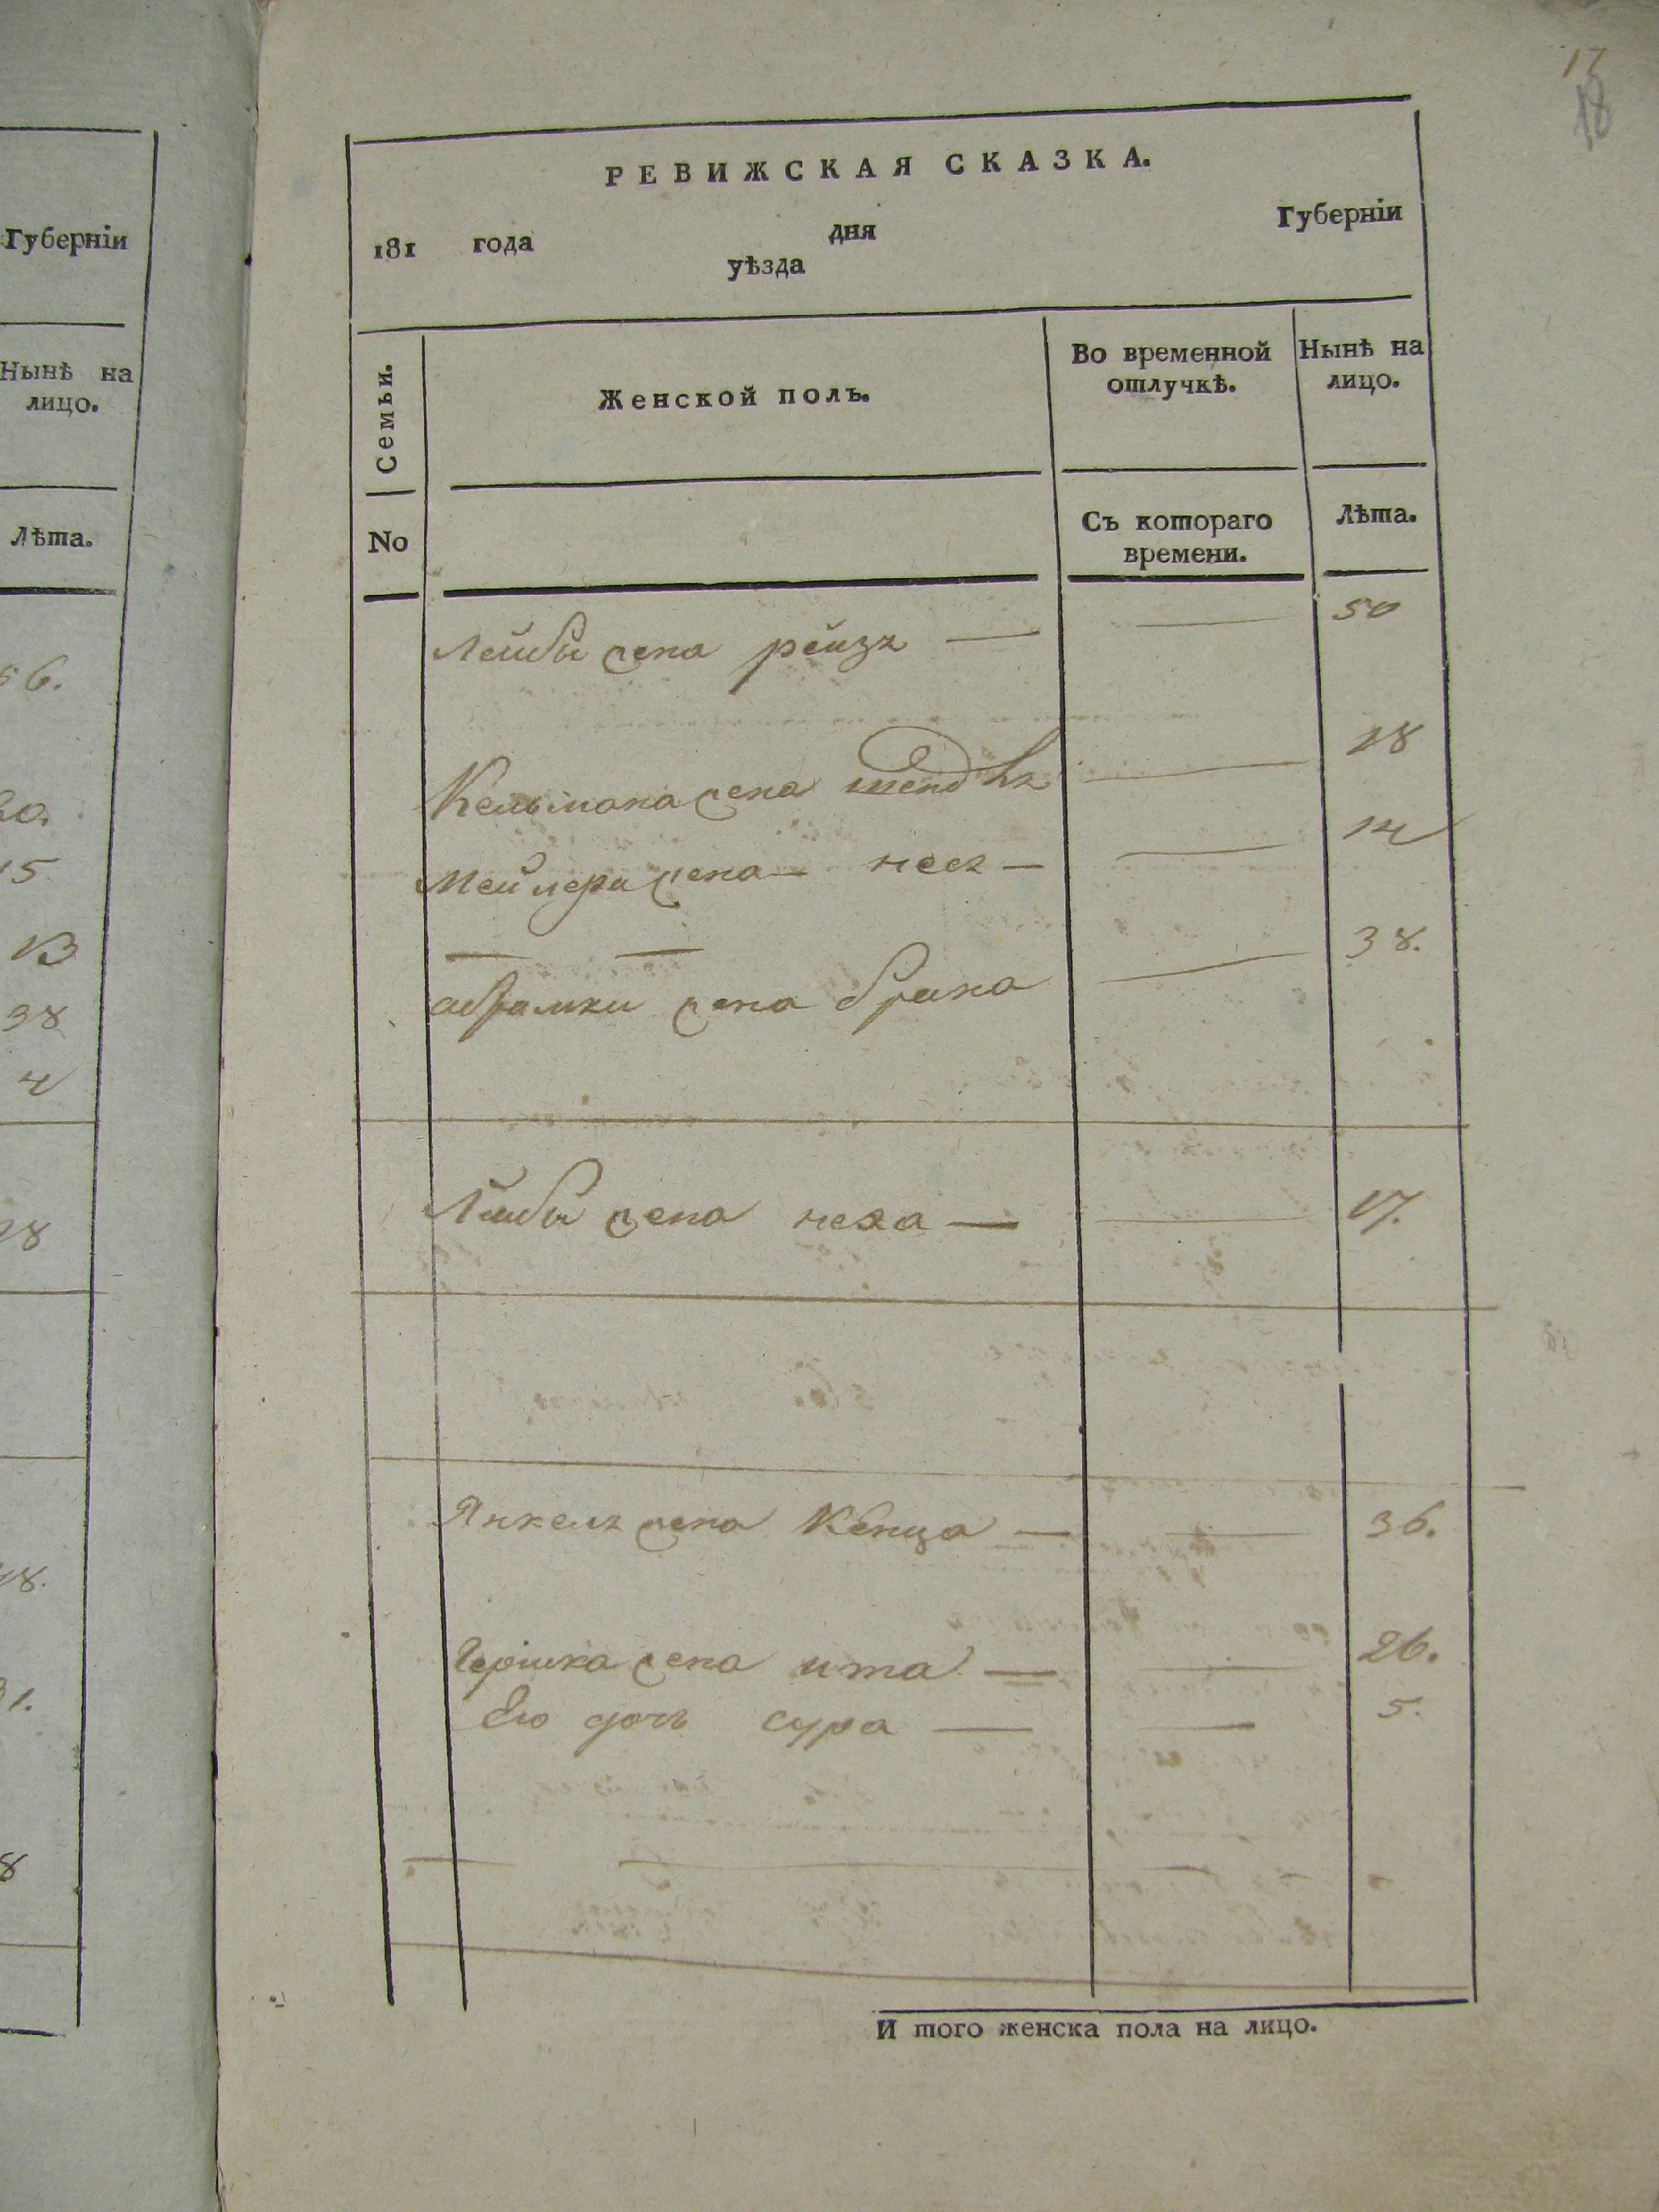 17
18
Губерніи
Нынѣ на
лицо.
Лѣта.
56.
20.
15
13
38
4
18
48.
31.
8
РЕВИЖСКАЯ СКАЗКА.
181 года дня Губерніи
уѣзда
Семьи. Женской полъ. Во временной отлучкѣ. Нынѣ на лицо.
No Съ котораго времени. Лѣта.
Лейбы жена рейзъ — — 50
Кельмана жена — 18
Мейлера жена — несъ — — 14
— —
абрамки жена брана — 38.
Лейбы жена неха — — 17.
Янкелъ жена Квенца — — 36.
Гершка жена ита — — 26.
Его дочь сура — — 5.
И того женска пола на лицо.